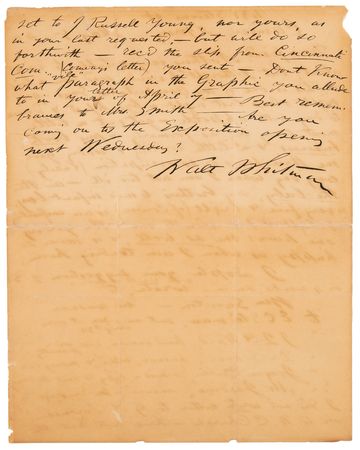 not to J Russell Young, nor yours, as
in your last requested — but will do so
forthwith — rec'd the slip from Cincinnati
Com. letter) you sent — Dont Know
what paragraph in the Graphic you allude
to in your letter of April 7 — Best remem-
brances to Mrs Smith — Are you
coming on to the Exposition opening
next Wednesday?
Walt Whitman